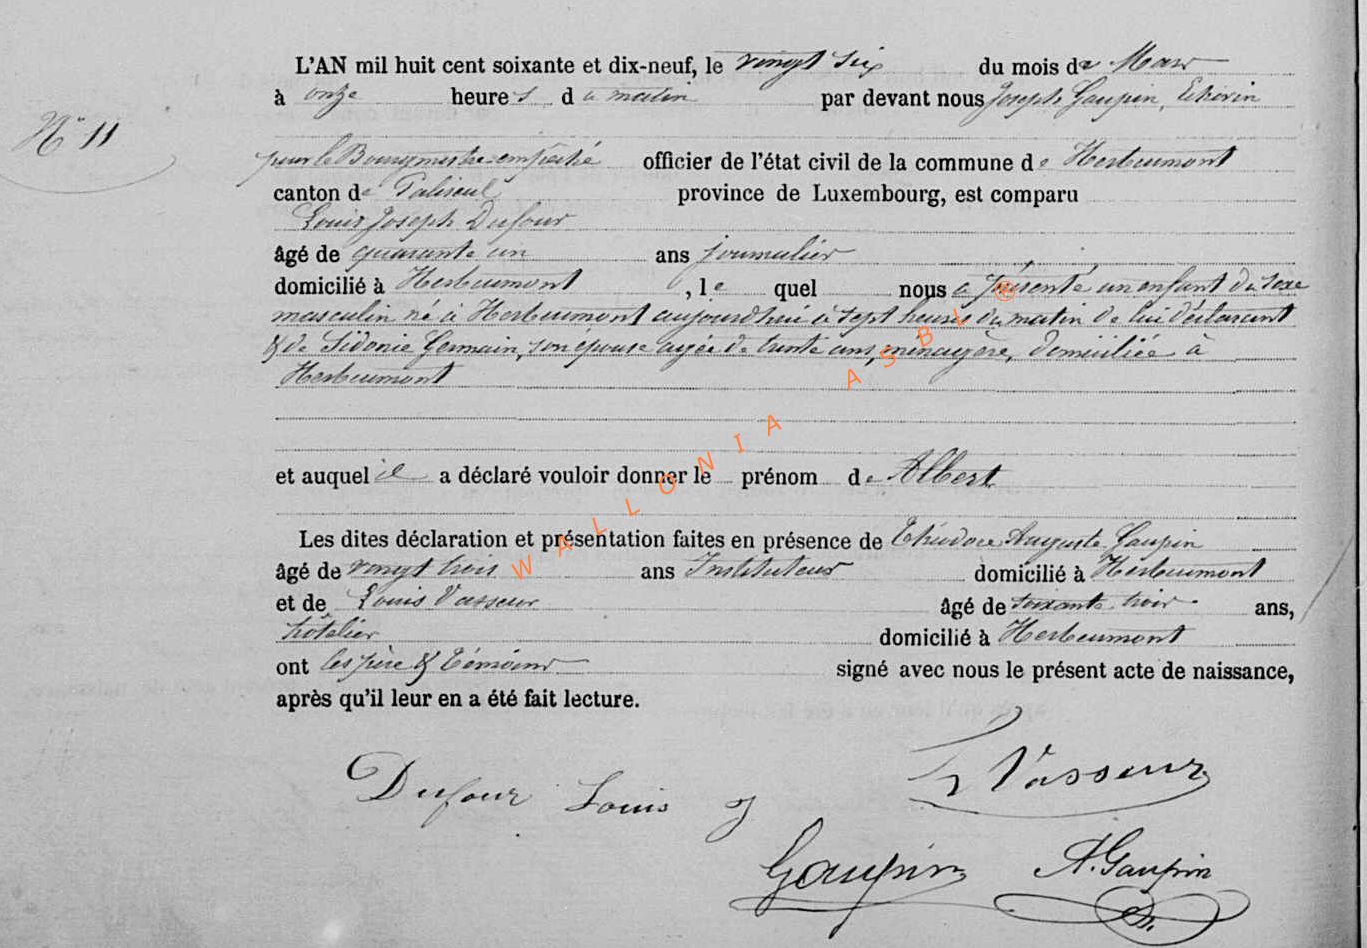 L'AN mil huit cent soixante et dix-neuf, le vingt six du mois de Mars
à onze heures du matin par devant nous Joseph Gaupin, Echevin
N° 11
pour le Bourgmestre empêché officier de l'état civil de la commune de Herbeumont
canton de Paliseul province de Luxembourg, est comparu
Louis Joseph Dufour
âgé de quarante un ans journalier
domicilié à Herbeumont, le quel nous a présenté un enfant du sexe
masculin né à Herbeumont aujourd'hui à sept heures du matin de lui déclarant
& de Sidonie Germain, son épouse agée de trente ans, ménagère, domiciliée à
Herbeumont
et auquel il a déclaré vouloir donner le prénom de Albert
Les dites déclaration et présentation faites en présence de Théodore Auguste Gaupin
âgé de vingt trois ans Instituteur domicilié à Herbeumont
et de Louis Vasseur âgé de soixante trois ans,
hôtelier domicilié à Herbeumont
ont les père & témoins signé avec nous le présent acte de naissance,
après qu'il leur en a été fait lecture.
Dufour Louis j
L Vasseur
Gaupin A. Gaupin
WALLONIA ASBL ®